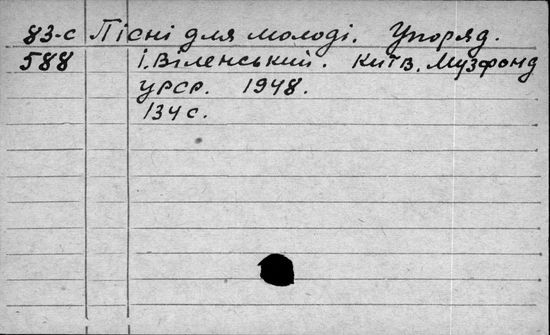 83-с Пісні для молоді. Упоряд.
588 І. Віленський. Київ. Музфонд
УРСР. 1948.
134 с.